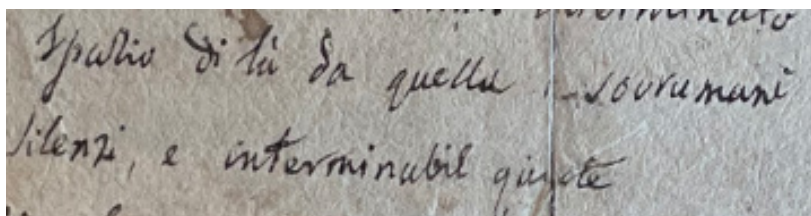 interminato
Spazio di là da quella sovrumani
Silenzi, e interminabil quiete